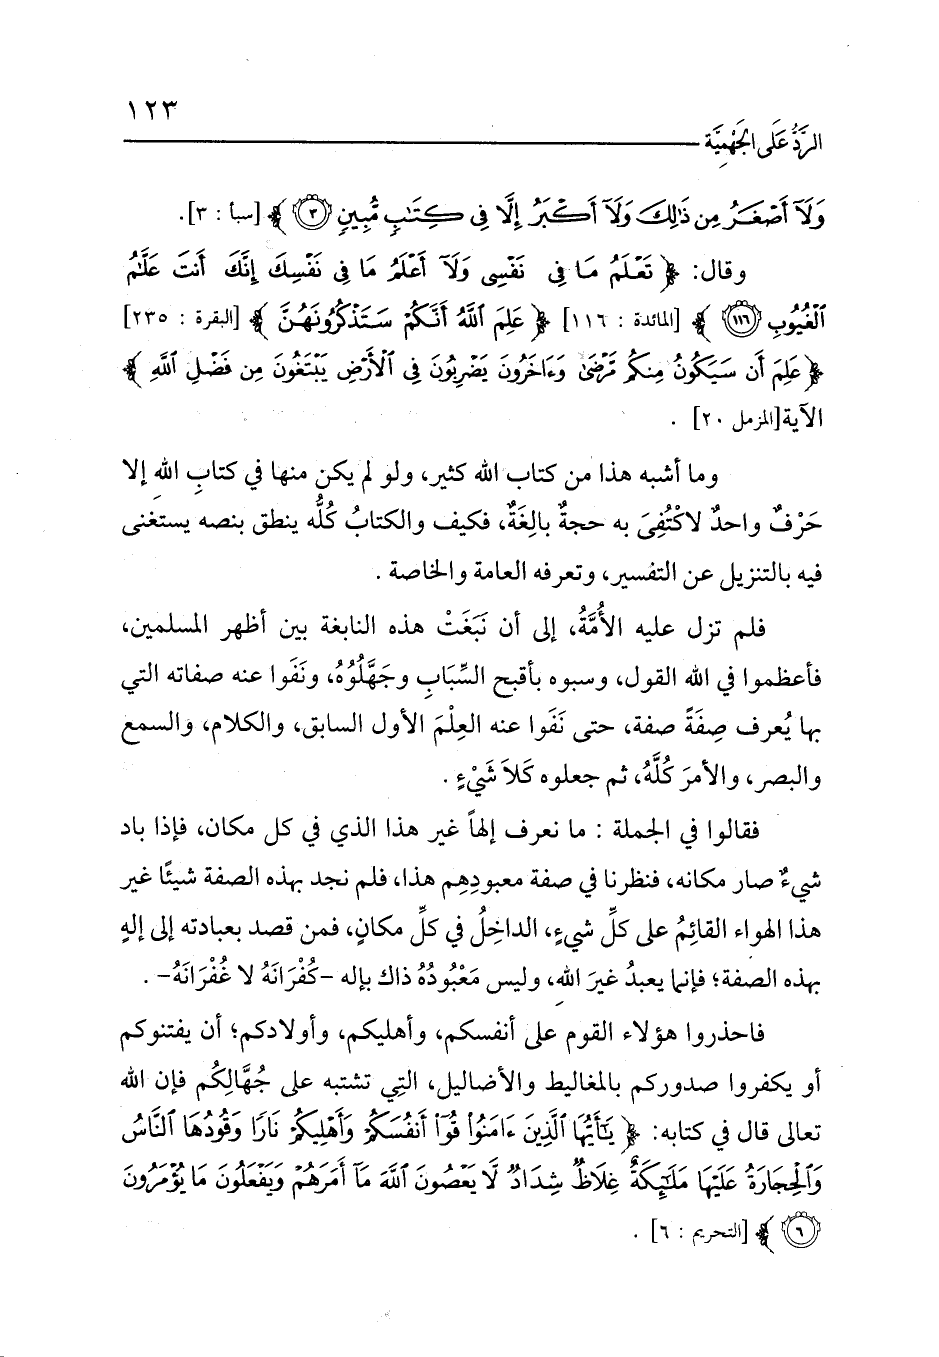 ١٢٣
الرَّدُّ عَلَى الجَهْمِيَّة
وَلَآ أَصْغَرُ مِن ذَٰلِكَ وَلَآ أَكْبَرُ إِلَّا فِى كِتَٰبٍ مُّبِينٍ ٣ ﴾ [سبأ : ٣].
وقال: ﴿ تَعْلَمُ مَا فِى نَفْسِى وَلَآ أَعْلَمُ مَا فِى نَفْسِكَ إِنَّكَ أَنتَ عَلَّٰمُ
ٱلْغُيُوبِ ١١٦ ﴾ [المائدة : ١١٦] ﴿ عَلِمَ ٱللَّهُ أَنَّكُمْ سَتَذْكُرُونَهُنَّ ﴾ [البقرة : ٢٣٥]
﴿ عَلِمَ أَن سَيَكُونُ مِنكُم مَّرْضَىٰ وَءَاخَرُونَ يَضْرِبُونَ فِى ٱلْأَرْضِ يَبْتَغُونَ مِن فَضْلِ ٱللَّهِ ﴾
الآية[المزمل ٢٠] .
وما أشبه هذا من كتاب الله كثير، ولو لم يكن منها في كتابِ الله إلا
حَرْفٌ واحدٌ لاكْتُفِيَ به حجةٌ بالِغَةٌ، فكيف والكتابُ كُلُّه ينطق بنصه يستغنى
فيه بالتنزيل عن التفسير، وتعرفه العامة والخاصة .
فلم تزل عليه الأُمَّةُ، إلى أن نَبَغَتْ هذه النابغة بين أظهر المسلمين،
فأعظموا في الله القول، وسبوه بأقبح السِّبَابِ وجَهَّلُوُهُ، ونَفَوا عنه صفاته التي
بها يُعرف صِفَةً صفة، حتى نَفَوا عنه العِلْمَ الأول السابق، والكلام، والسمع
والبصر، والأمرَ كُلَّهُ، ثم جعلوه كَلاَ شَيْءٍ .
فقالوا في الجملة : ما نعرف إلهاً غير هذا الذي في كل مكان، فإذا باد
شيءٌ صار مكانه، فنظرنا في صفة معبودِهِم هذا، فلم نجد بهذه الصفة شيئًا غير
هذا الهواء القائِمُ على كلِّ شيءٍ، الداخِلُ في كلِّ مكانٍ، فمن قصد بعبادته إلى إلهٍ
بهذه الصفة؛ فإنما يعبدُ غيرَ الله، وليس مَعْبُودُهُ ذاك بإله -كُفْرَانَهُ لا غُفْرَانَهُ- .
فاحذروا هؤلاء القوم على أنفسكم، وأهليكم، وأولادكم؛ أن يفتنوكم
أو يكفروا صدوركم بالمغاليط والأضاليل، التِي تشتبه على جُهَّالِكُم فإن الله
تعالى قال في كتابه: ﴿ يَٰٓأَيُّهَا ٱلَّذِينَ ءَامَنُوا۟ قُوٓا۟ أَنفُسَكُمْ وَأَهْلِيكُمْ نَارًا وَقُودُهَا ٱلنَّاسُ
وَٱلْحِجَارَةُ عَلَيْهَا مَلَٰٓئِكَةٌ غِلَاظٌ شِدَادٌ لَّا يَعْصُونَ ٱللَّهَ مَآ أَمَرَهُمْ وَيَفْعَلُونَ مَا يُؤْمَرُونَ
٦ ﴾ [التحريم : ٦] .